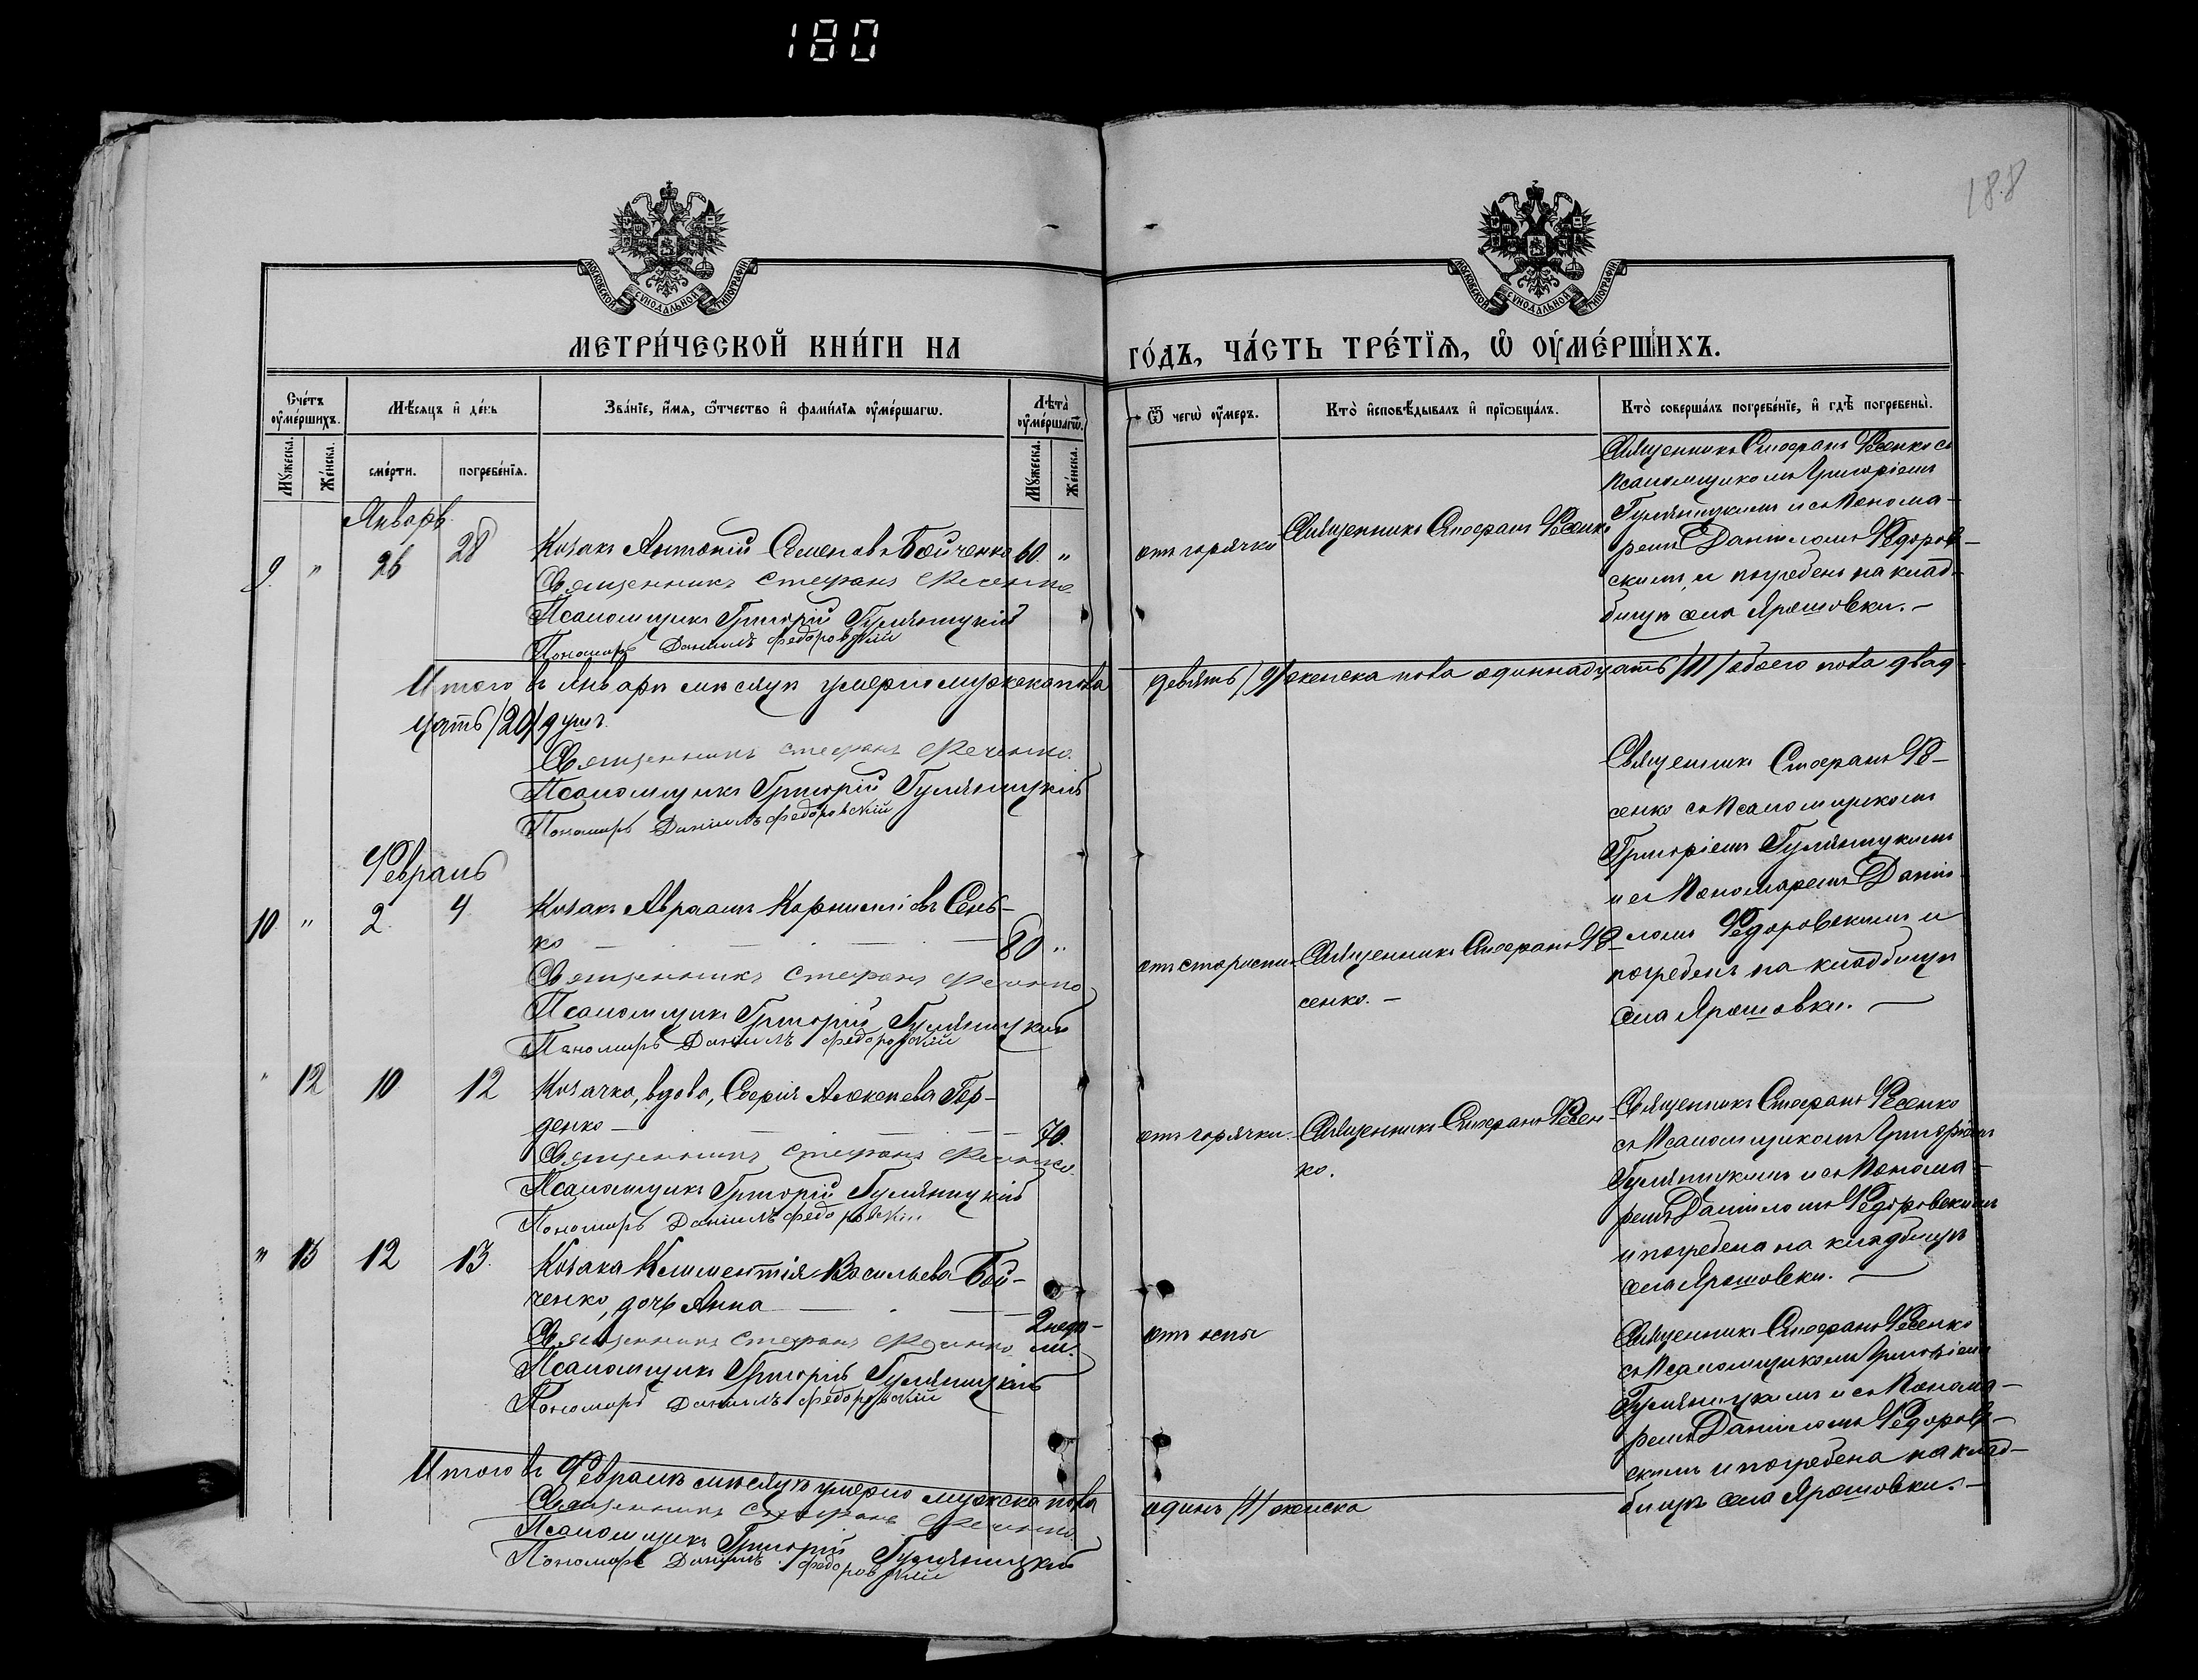 180
188
МОСКОВСКОЙ СѴНОДАЛЬНОЙ ТИПОГРАФІИ
МОСКОВСКОЙ СѴНОДАЛЬНОЙ ТИПОГРАФІИ
МЕТРИ́ЧЕСКОЙ КНИ́ГИ НА
ГО́ДЪ, ЧА́СТЬ ТРЕ́ТЇѦ, Ѽ ОУМЕ́РШИХЪ.
Сче́тъ оуме́ршихъ.
Мѣ́сяцъ и де́нь
Зва́нїе, и́мя, ѻ҆́тчество и фами́лїя оуме́ршагѡ.
Лѣта̀ оуме́ршагѡ.
Му́жеска.
Же́нска.
сме́рти.
погребе́нїя.
Му́жеска.
Же́нска.
Ѿ чегѡ̀ оу́меръ.
Кто̀ исповѣ́дывалъ и прїѡбща́лъ.
Кто̀ соверша́лъ погребе́нїе, и гдѣ̀ погребены̀.
Январь
9. " 26 28
Козакъ Антоній Семеновъ Бойченко 60. "
Священникъ Стефанъ Фесенко
Псаломщикъ Григорій Гуляницкій
Пономарь Даніилъ Федоровскій
отъ горячки
Священникъ Стефанъ Фесенко
Священникъ Стефанъ Фесенко съ
Псаломщикомъ Григоріемъ
Гуляницкимъ и съ Понома-
ремъ Даніиломъ Федоров-
скимъ и погребенъ на клад-
бищѣ села Ярошовки. —
Итого въ Январѣ мѣсяцѣ умерло мужеска пола
девять /9/ женска пола одиннадцать /11/ обоего пола двад-
цать /20/ душъ.
Священникъ Стефанъ Фесенко
Псаломщикъ Григорій Гуляницкій
Пономарь Даніилъ Федоровскій
Февраль
10. " 2. 4
Козакъ Авраамъ Корниліевъ Сень-
ко — 80 "
Священникъ Стефанъ Фесенко
Псаломщикъ Григорій Гуляницкій
Пономарь Даніилъ Федоровскій
отъ старости
Священникъ Стефанъ Фе-
сенко. —
Священникъ Стефанъ Фе-
сенко съ Псаломщикомъ
Григоріемъ Гуляницкимъ
и съ Пономаремъ Даніи-
ломъ Федоровскимъ и
погребенъ на кладбищѣ
села Ярошовки. —
" 12 10 12
Козачка, вдова, Софія Алексѣева Гор-
денко — 70.
Священникъ Стефанъ Фесенко
Псаломщикъ Григорій Гуляницкій
Пономарь Даніилъ Федоровскій
отъ горячки.
Священникъ Стефанъ Фесен-
ко.
Священникъ Стефанъ Фесенко
съ Псаломщикомъ Григоріемъ
Гуляницкимъ и съ Понома-
ремъ Даніиломъ Федоровскимъ
и погребена на кладбищѣ
села Ярошовки. —
" 13 12 13.
Козака Климентія Васильева Бой-
ченко, дочь Анна — 2 недѣ-
ли.
Священникъ Стефанъ Фесенко
Псаломщикъ Григорій Гуляницкій
Пономарь Даніилъ Федоровскій
отъ оспы
Священникъ Стефанъ Фесенко
съ Псаломщикомъ Григоріемъ
Гуляницкимъ и съ Понома-
ремъ Даніиломъ Федоров-
скимъ и погребена на клад-
бищѣ села Ярошовки. —
Итого въ Февралѣ мѣсяцѣ умерло мужеска пола
одинъ /1/ женска
Священникъ Стефанъ Фесенко
Псаломщикъ Григорій Гуляницкій
Пономарь Даніилъ Федоровскій